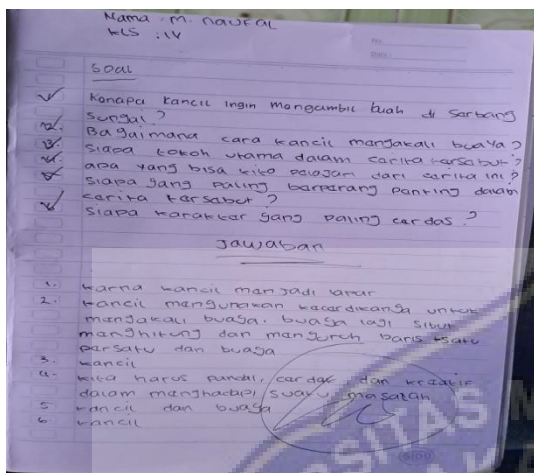 Nama : M. naufal
KLS : IV
No.
Date :
Soal
1. Kenapa kancil ingin mengambil buah di Sarbang
Sungai ?
2. Bagaimana cara kancil mangakali buaya ?
3. Siapa tokoh utama dalam carita tarsabut ?
4. apa yang bisa kita palajari dari carita ini ?
5. Siapa yang paling barparang panting dalam
carita tarsabut ?
6. Siapa karaktar yang paling cardas ?
Jawaban
1. karna kancil manjadi lapar
2. kancil mangunakan kacardikanya untuk
mangakali buaya. buaya lagi sibuk
manghitung dan manyuruh baris
parsatu dan buaya
3. kancil
4. kita harus pandai, cardas dan kraatif
dalam manghadapi suatu masalah
5 kancil dan buaya
6 kancil